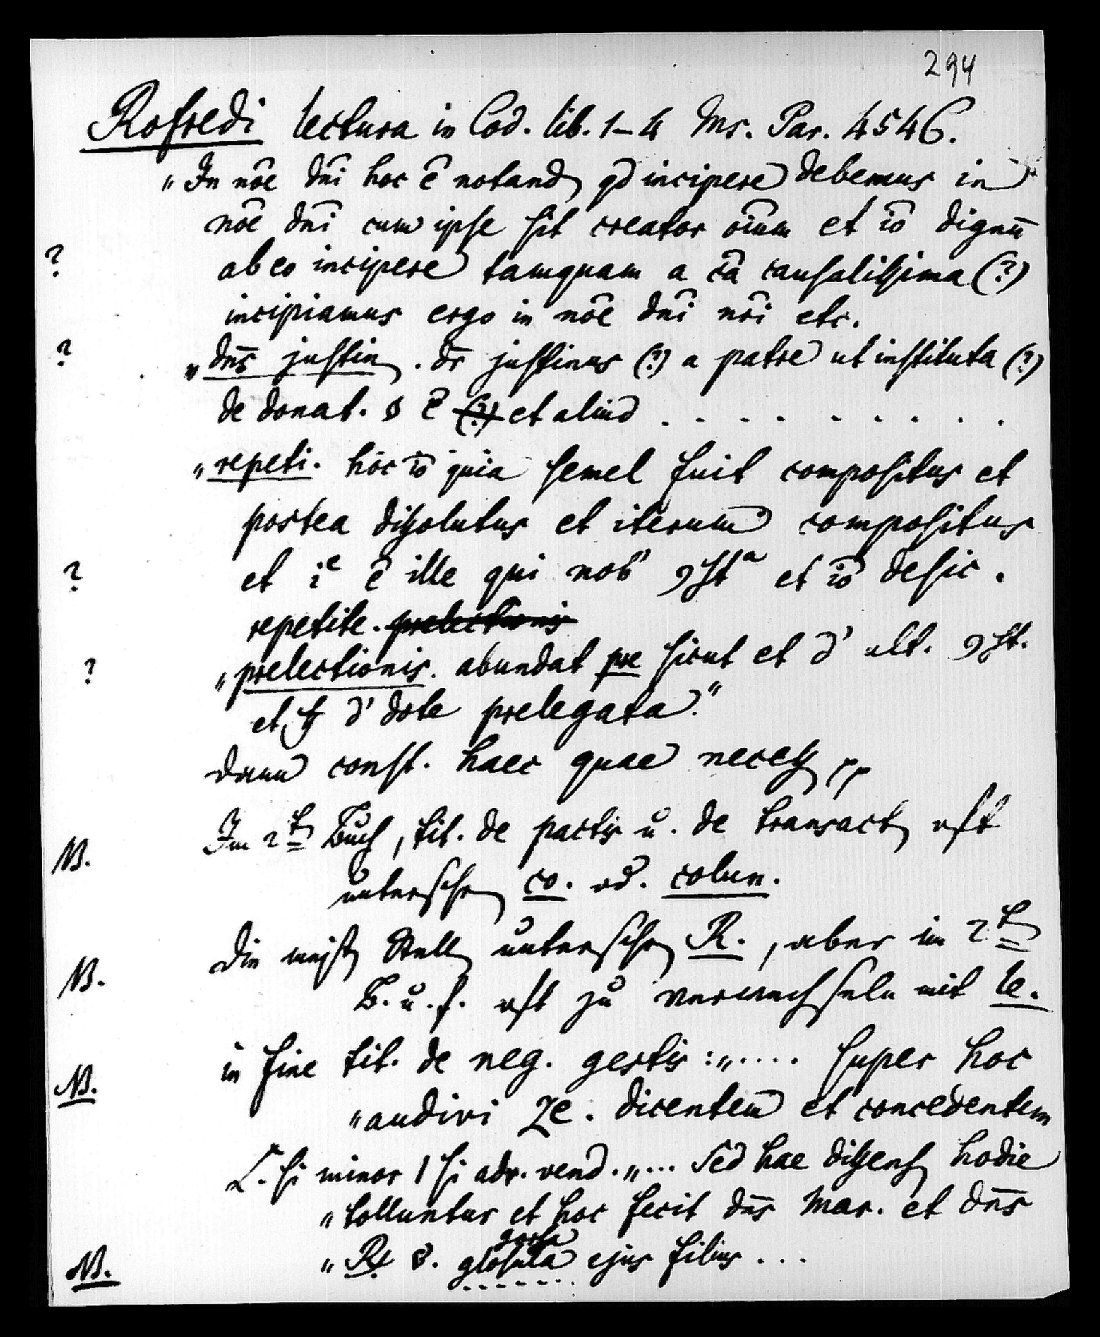 294
Rofredi lectura in Cod. lib. 1–4 Ms. Par. 4546.
"In nōe dn̄i hoc ē notand qd incipere debemus in
nōe dn̄i cum ipse sit creator oīum et iō dignū
? ab eo incipere tamquam a cā causalissima (?)
incipiamus ergo in nōe dn̄i nr̄i etc.
? "dn̄s justin. dr̄ justinus (?) a patre ut instituta (?)
de donat. § ē (?) et aliud . . . . . . . . . .
"repeti. hoc iō quia semel fuit compositus et
postea dissolutus et iterum compositus
? et ē ille qui et iō desic.
repetite. prelectionis
? "prelectionis. abundat pre sicut et ult.
et ff d' dote prelegata."
dann const. haec quae necess pp
NB. Im 2t Buch, tit. de pactis u. de transact oft
unterschr co. od. colum.
NB. Die meist Stell unterschr R., aber im 2t
B. u. f. oft zu verwechseln mit le.
NB. in fine tit. de neg. gestis: ".... super hoc
"audivi . dicentem et concedentem
L. si minor 1 si adv. vend. "... Sed hae dissens hodie
"tolluntur et hoc fecit dn̄s Mar. et dn̄s
NB. "R. glosula ejus filius ...